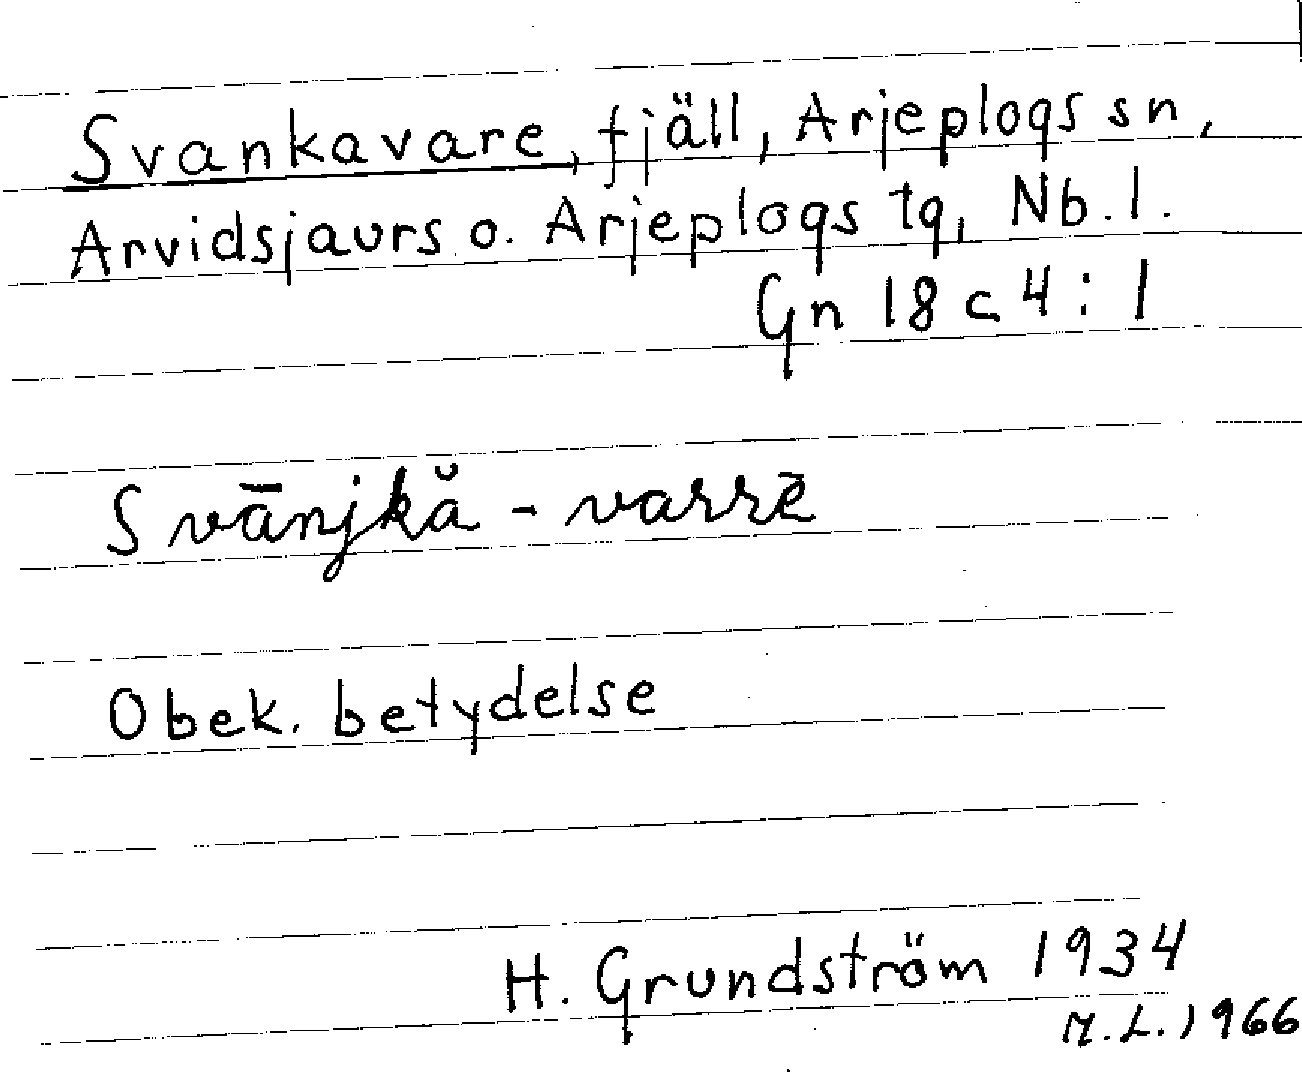 Svankavare, fjäll, Arjeplogs sn,
Arvidsjaurs o. Arjeplogs tg, Nb.l.
Gn 18 c 4:1
Svānjkă-varrē
Obek. betydelse
H. Grundström 1934
M.L. 1966